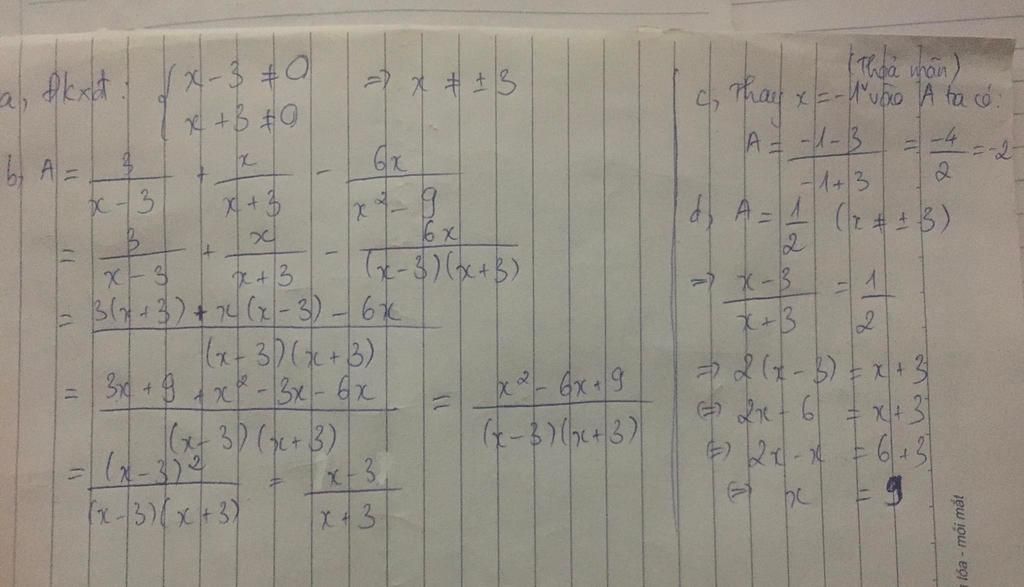 a, Đkxđ: { x - 3 ≠ 0 => x ≠ ± 3
x + 3 ≠ 0
b, A = 3/(x - 3) + x/(x + 3) - 6x/(x² - 9)
= 3/(x - 3) + x/(x + 3) - 6x/((x - 3)(x + 3))
= (3(x + 3) + x(x - 3) - 6x)/((x - 3)(x + 3))
= (3x + 9 + x² - 3x - 6x)/((x - 3)(x + 3)) = (x² - 6x + 9)/((x - 3)(x + 3))
= (x - 3)²/((x - 3)(x + 3)) = (x - 3)/(x + 3)
(Thoả mãn)
c, Thay x = -1 vào A ta có:
A = (-1 - 3)/(-1 + 3) = -4/2 = -2
d, A = 1/2 (x ≠ ± 3)
=> (x - 3)/(x + 3) = 1/2
=> 2(x - 3) = x + 3
(=) 2x - 6 = x + 3
(=) 2x - x = 6 + 3
(=) x = 9
lóa - mỏi mắt